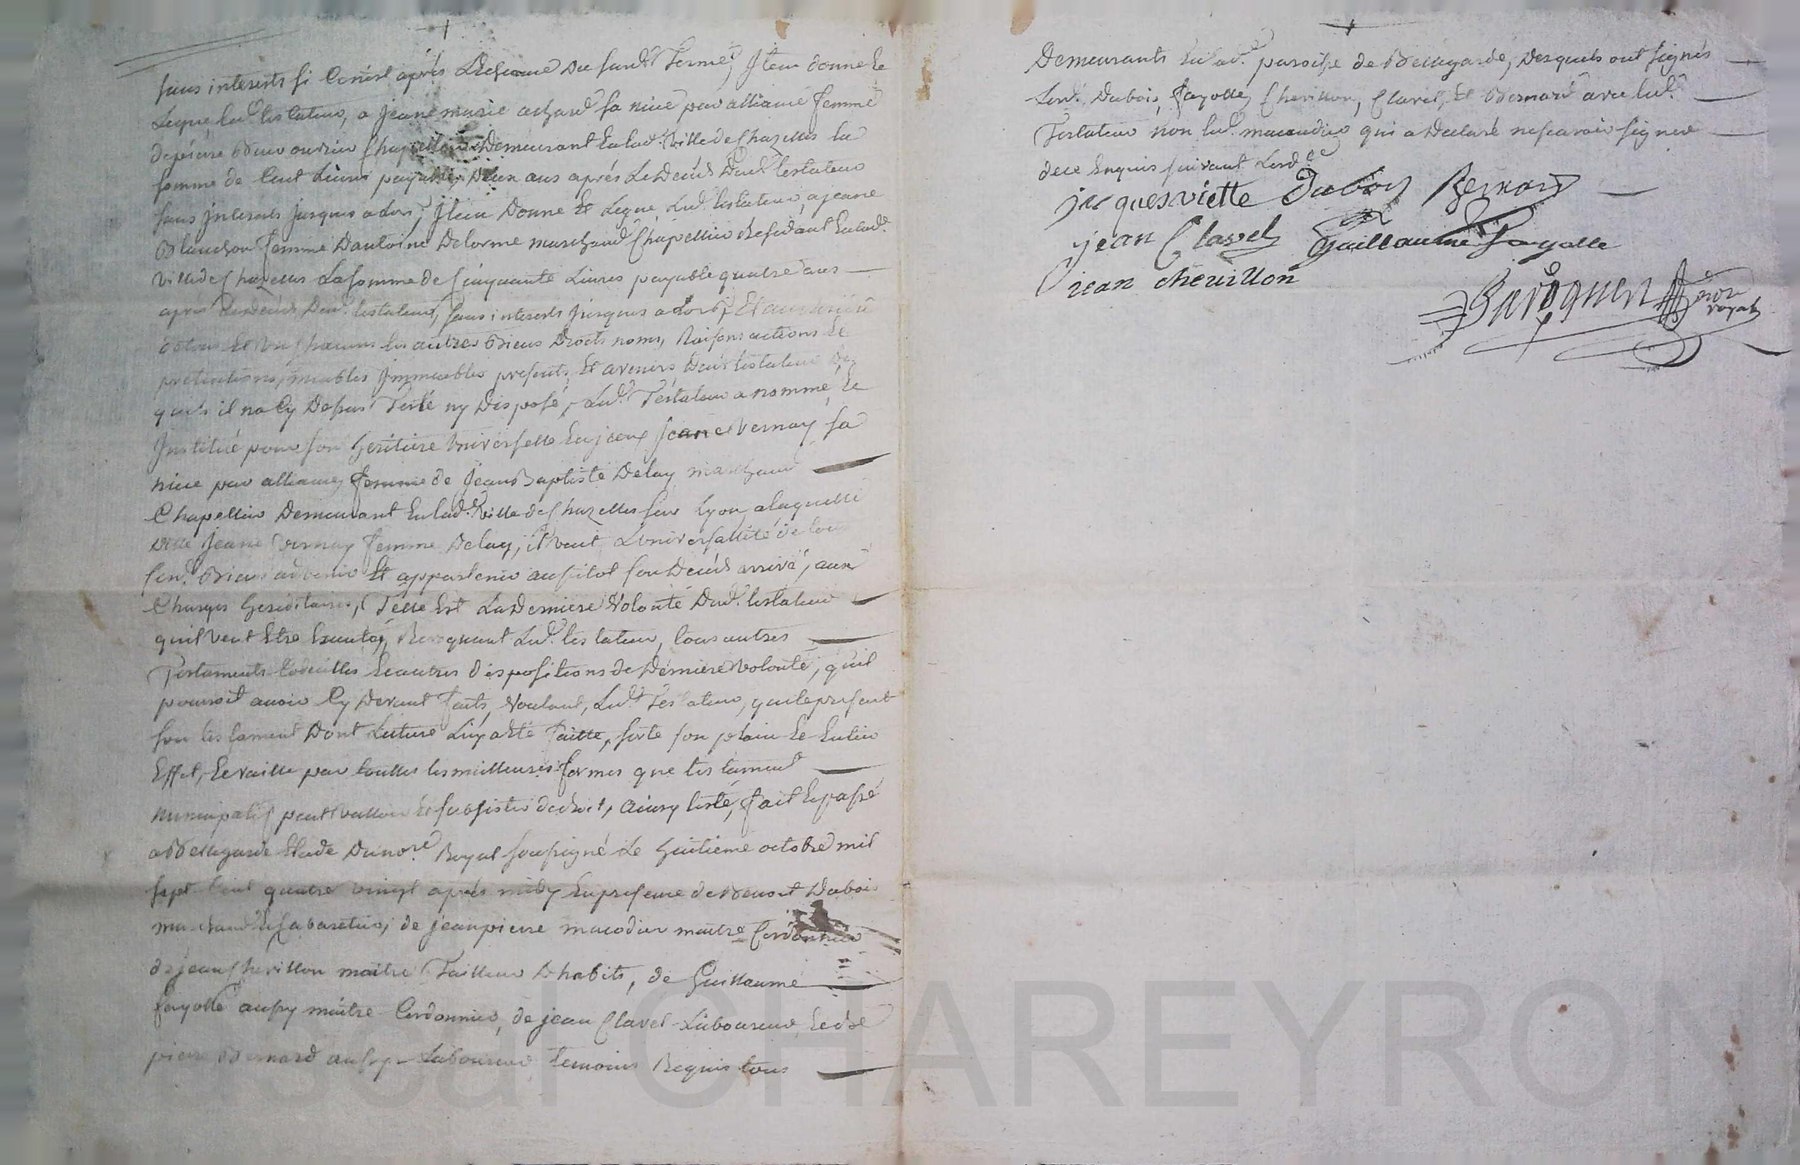 sans interests si ce n'est après Lecheance du susd.t Terme, Item donne Et
Legue, Led. testateur, a jeane marie achard sa niece par alliance femme
de pierre ouvrier Chapellier Demeurant En lad. Ville de Chazelles la
somme de Cent Livres payable, Deux ans après Le Deceds Dud. testateur
sans jnterests jusques a dors, jtem Donne Et Legue, Lud. testateur, a jeane
Blanchon femme D'antoine Delorme marchand Chapellier Residant En lad.
Ville de Chazelles La somme de Cinquante Livres payable quatre ans
après Le deceds Dud. testateur, sans interests jusques a Lors, Et au
Et un Chacuns les autres Biens Droits noms, Raisons actions Et
pretentions, meubles jmmeubles presents, Et avenirs Dud. testateur Des
quels il na Cy Dessus Testé ny Disposé, Led. Testateur a nommé, Et
Institué pour son heritiere Universelle jeane Vernay sa
niece par alliance, femme de Jean Baptiste Delay marchand
Chapellier Demeurant En lad. Ville de Chazelles sur Lyon, a laquelle
ditte jeane Vernay femme Delay, il veut L'universallité de tous
sesd. Biens advenir Et appartenir aussitot son Deceds arrivé, aux
Charges hereditaires, Telle Est La Derniere Volonté Dud. testateur
qu'il veut Etre Executée, Revoquant Led. testateur, tous autres
Testaments Codicilles Et autres dispositions de Derniere Volonté, qu'il
pourroit avoir Cy Devant faits, Voulant, Led. Testateur, que le present
son testament Dont Lecture Luy a Eté faitte, sorte son plain Et Entier
Effet, Et vaille par touttes les meilleures formes que testament
nuncupatif peut valloir Et subsister de droit, Ainsy testé, fait Et passé
a Bellegarde Etude Du no.re Royal soussigné Le huitieme octobre mil
sept Cent quatre vingt après midy En presence de Benoit Dubois
marchand Et Cabaretier, de jean pierre macodier maitre Cordonnier
de jean Cherillon maitre Tailleur D'habits, de Guillaume
fayolle aussy maitre Cordonnier, de jean Clavel Laboureur Et de
pierre Bernard aussy Laboureur temoins Requis tous
Demeurants En lad. paroisse de Bellegarde, Desquels ont signés
Lesd. Dubois, fayolle, Cherillon, Clavel, Et Bernard avec led.
Testateur non led. macaudier qui a Declaré ne scavoir signer
de ce Enquis suivant Lord.ce
jacques viette Dubois Bernard
jean Clavel Guillaume fayolle
jean cherillon
no.re royal